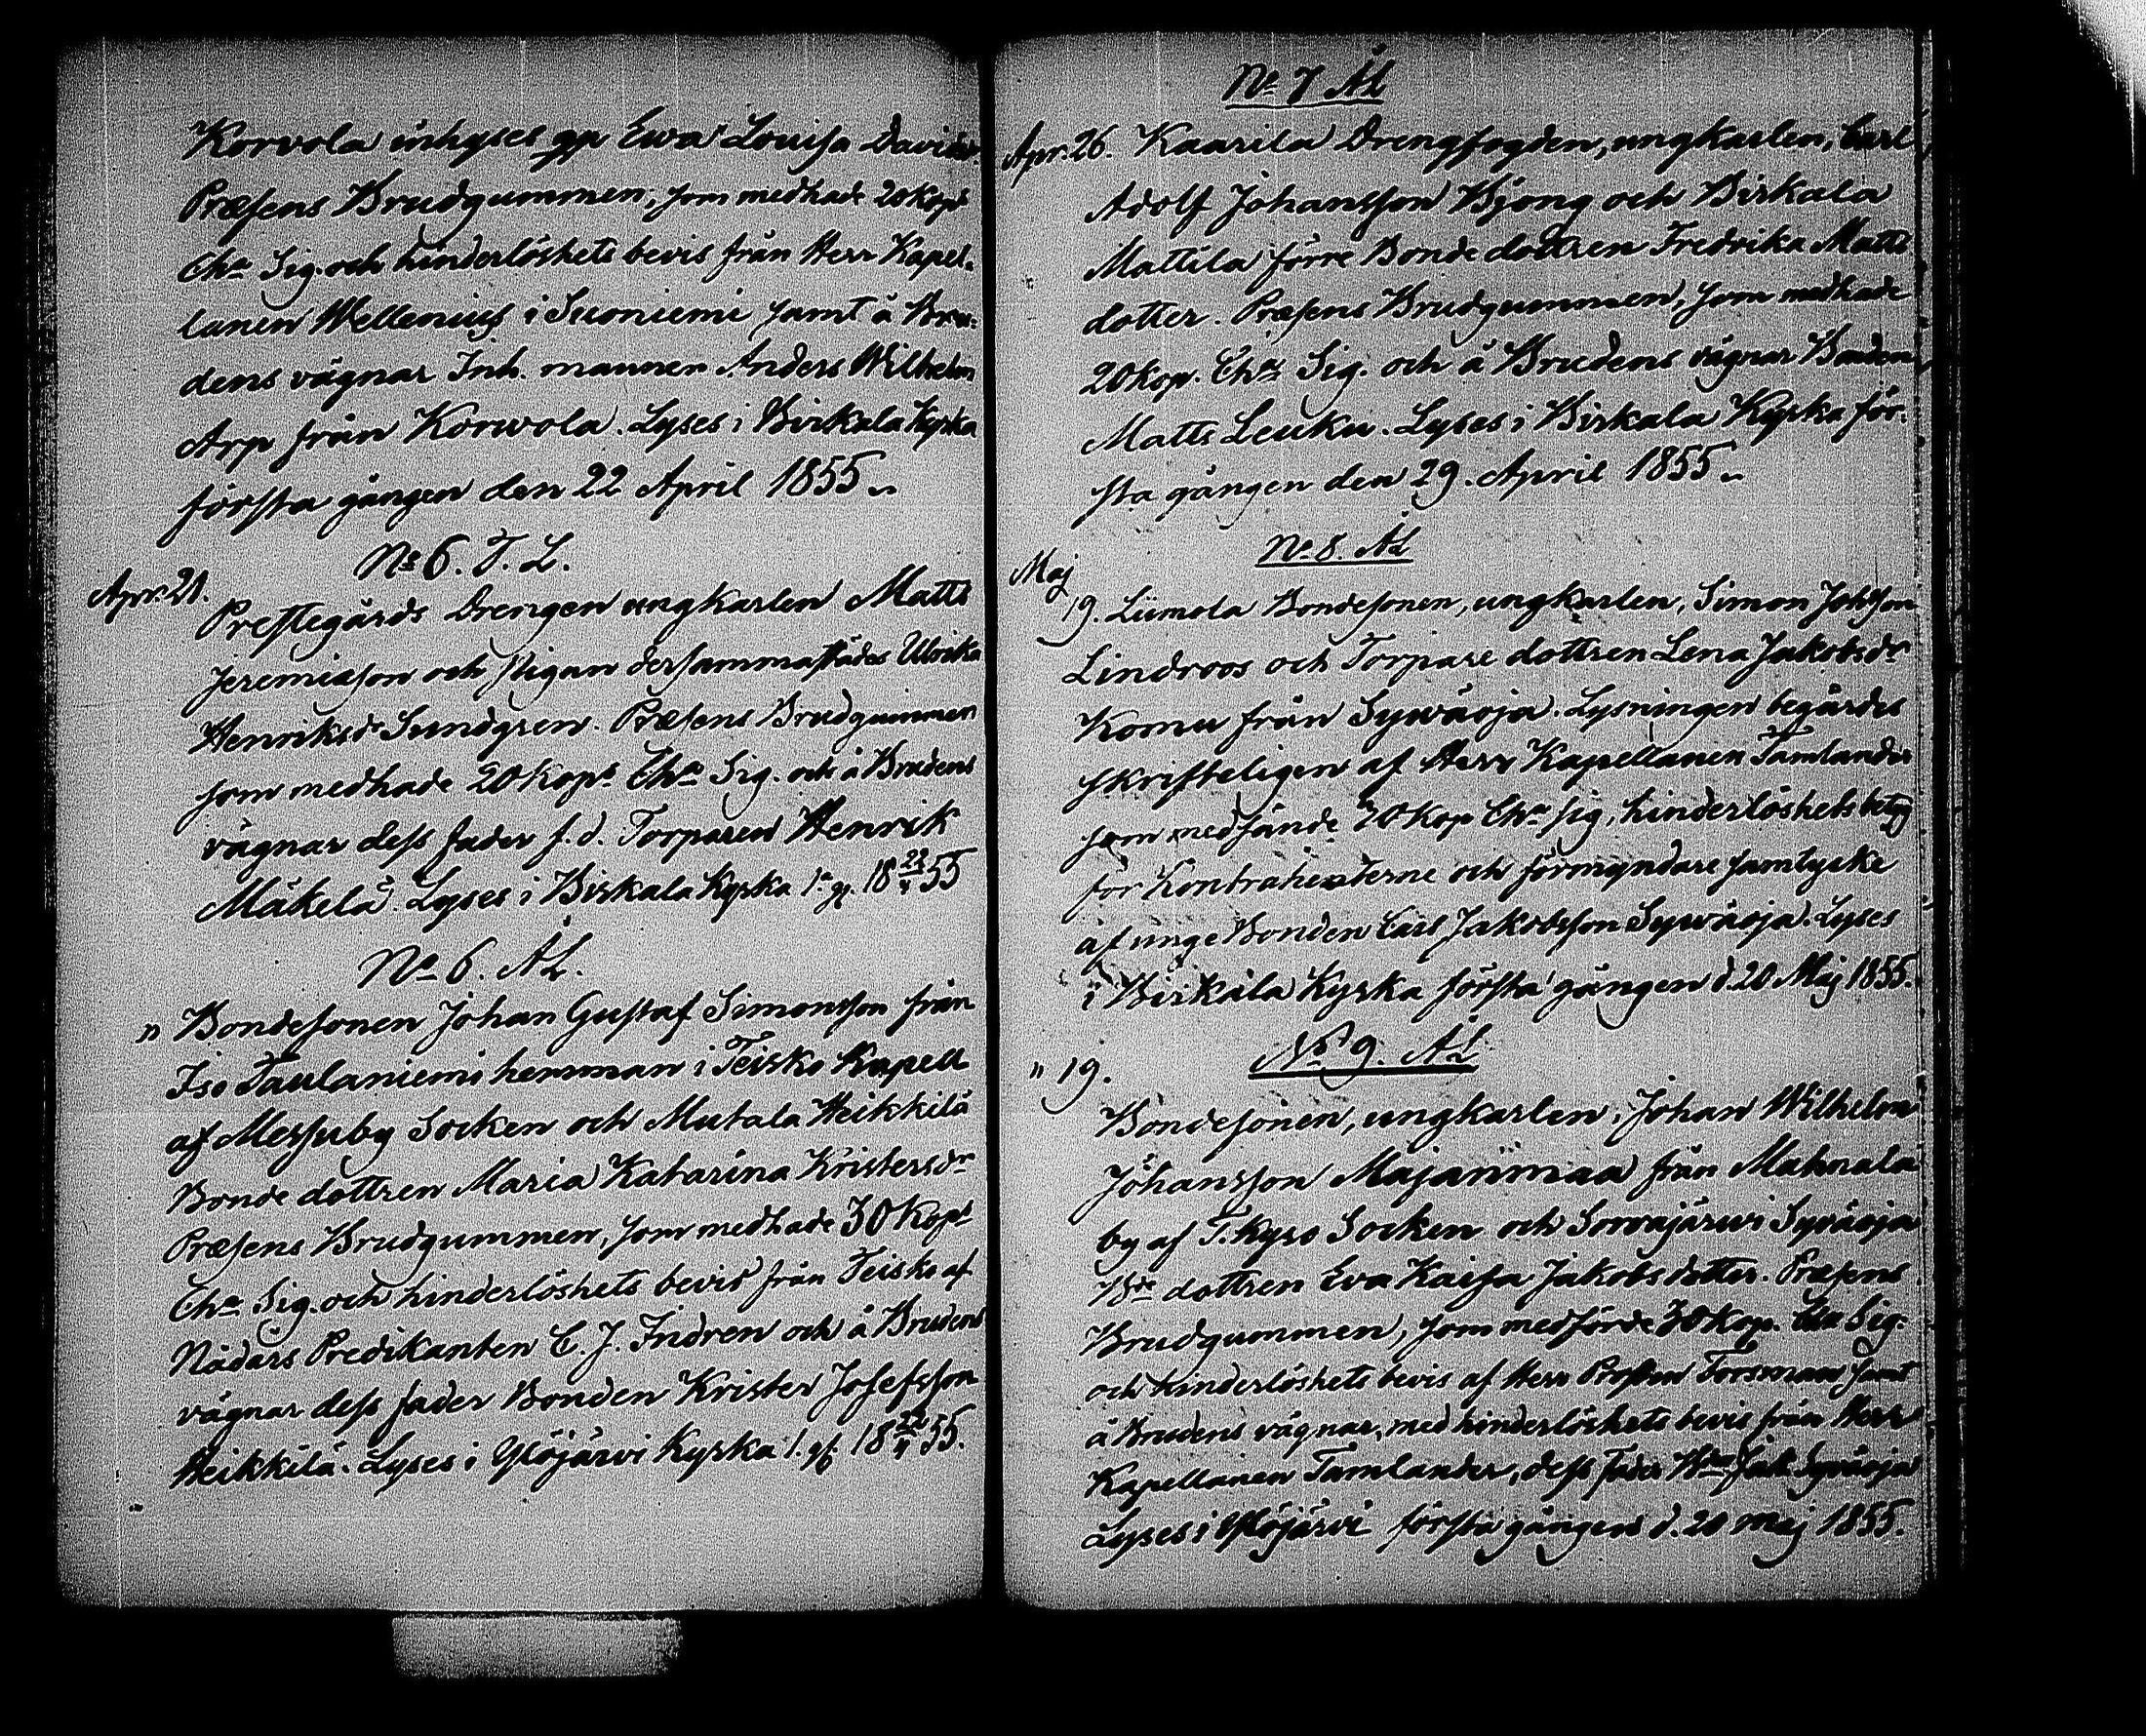 Korvola inhyses gp Ewa Louisa Davidsr.
Præsens Brudgummen, som medhade 20 Kops
Cha Sig. och hinderlöshets bevis från Herr Kapel-
lanen Wellenius i Suoniemi samt å Bru-
dens vägnar Inh. mannen Anders Wilhelm
Arp från Korwola. Lyses i Birkala Kyrka
första gången den 22 April 1855.
No 6. T. L.
Apr. 21. Prestegårds Drengen ungkarlen Matts
Jeremiasson och pigan dersammastädes Ulrika
Henriksdr Sundgren. Præsens Brudgummen
som medhade 20 Kops Cha Sig. och å Brudens
vägnar dess fader f.d. Torparen Henrik
Mäkelä. Lyses i Birkala Kyrka 1a g. 18 22/4 55
No 6. ÄL.
" Bondesonen Johan Gustaf Simonsson från
Iso Taulaniemi hemman i Teisko Kapell
af Messuby Socken och Mutala Heikkilä
Bonde dottren Maria Katarina Kristersdr
Præsens Brudgummen, som medhade 30 Kops
Cha Sig. och hinderlöshets bevis från Teisko af
Nådårs Predikanten C. J. Indren och å Brudens
vägnar dess fader Bonden Krister Josefsson
Heikkilä. Lyses i Ylöjärvi Kyrka 1. g. 18 22/4 55.
No 7 ÄL
Apr. 26. Kaarila Drengfogden, ungkarlen, Carl
Adolf Johansson Bjong och Birkala
Mattila förre Bonde dottren Fredrika Matts
dotter. Præsens Brudgummen, som medhade
20 kop. Cha Sig. och å Brudens vägnar Bonden
Matts Leuku. Lyses i Birkala Kyrka för-
sta gången den 29. April 1855.
No 8. ÄL
Maj
19. Liimola Bondesonen, ungkarlen, Simon Johsson
Lindroos och Torpare dottren Lena Jakobsdr
Komu från Sywäoja. Lysningen begärdes
skrifteligen af Herr Kapellanen Tamlander
som medsände 20 Kop Cha Sig, hinderlöshets betyg
för Kontrahenterne och förmyndare samtycke
af unge Bonden Carl Jakobsson Sywäoja. Lyses
i Birkala Kyrka första gången d. 20 Maj 1855.
No 9. ÄL
" 19.
Bondesonen, ungkarlen, Johan Wilhelm
Johansson Majanmaa från Mahnala
by af T. Kyro Socken och Sorvajärwi Sywäoja
Bde dottren Eva Kaisa Jakobsdotter. Præsens
Brudgummen, som medförde 30 kop. Cha Sig.
och hinderlöshets bevis af Herr Prosten Forsman samt
å Brudens vägnar, med hinderlöshets bevis från Herr
Kapellanen Tamlander, dess fader Bden Jak. Sywäoja
Lyses i Ylöjärvi första gången d. 20 Maj 1855.